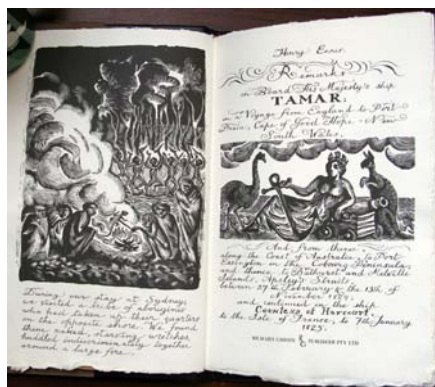 During our stay at Sydney,
we visited a tribe of aborigines
who had taken up their quarters
on the opposite shore. We found
them naked, starving wretches,
huddled indiscriminately together
around a large fire.
Henry Ennis.
Remarks
on Board His Majesty's ship
TAMAR:
on a Voyage from England to Port
Praia, Cape of Good Hope - New
South Wales,
And from thence
along the Coast of Australia to Port
Essington in the Cobourg Peninsula,
and thence to Bathurst and Melville
Islands, Apsley's Straits,
between 27th February & the 13th of
November 1824;
and continued in the ship
to the Isle of France, to 7th January
1825.
RICHARD GRIFFIN PUBLISHER PTY LTD